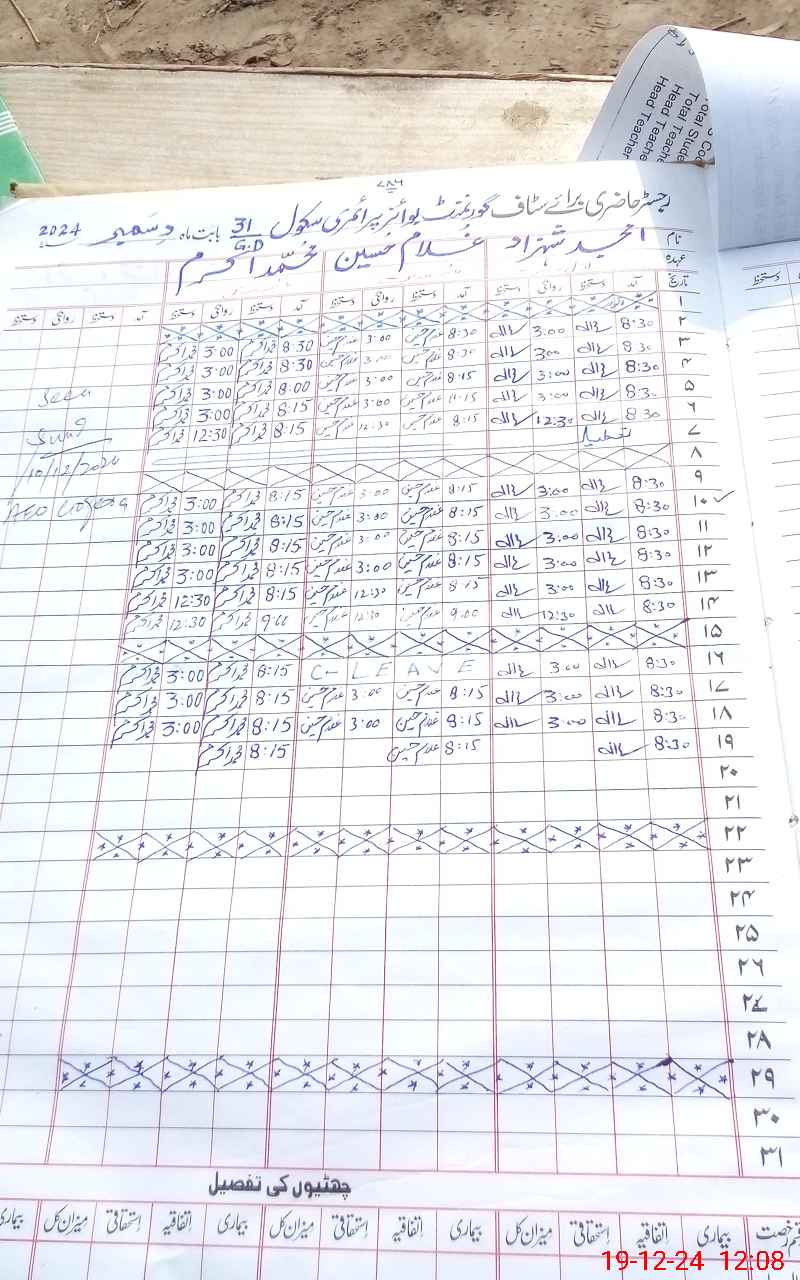 Head Teacher
Head Teache
Total Stude
۷۸۶
رجسٹر حاضری برائے سٹاف گورنمنٹ بوائز پرائمری سکول 31/G.D بابت ماہ دسمبر 2024
نام امجد شہزاد غلام حسین محمد اکرم
عہدہ
تاریخ آمد دستخط روانگی دستخط آمد دستخط روانگی دستخط آمد دستخط روانگی دستخط آمد دستخط روانگی دستخط
۱
۲ 8:30 3:00 8:30 غلام حسین 3:00 غلام حسین 8:30 محمد اکرم 3:00 محمد اکرم
۳ 8:30 3:00 8:30 غلام حسین 3:00 غلام حسین 8:30 محمد اکرم 3:00 محمد اکرم
۴ 8:30 3:00 8:15 غلام حسین 3:00 غلام حسین 8:00 محمد اکرم 3:00 محمد اکرم
۵ 8:30 3:00 8:15 غلام حسین 3:00 غلام حسین 8:15 محمد اکرم 3:00 محمد اکرم
۶ 8:30 12:30 8:15 غلام حسین 12:30 غلام حسین 8:15 محمد اکرم 12:30 محمد اکرم
۷ تعطیل
۸
۹ 8:30 3:00 8:15 غلام حسین 3:00 غلام حسین 8:15 محمد اکرم 3:00 محمد اکرم
۱۰ 8:30 3:00 8:15 غلام حسین 3:00 غلام حسین 8:15 محمد اکرم 3:00 محمد اکرم
۱۱ 8:30 3:00 8:15 غلام حسین 3:00 غلام حسین 8:15 محمد اکرم 3:00 محمد اکرم
۱۲ 8:30 3:00 8:15 غلام حسین 3:00 غلام حسین 8:15 محمد اکرم 3:00 محمد اکرم
۱۳ 8:30 3:00 8:15 غلام حسین 12:30 غلام حسین 8:15 محمد اکرم 12:30 محمد اکرم
۱۴ 8:30 12:30 9:00 غلام حسین 12:30 غلام حسین 9:00 محمد اکرم 12:30 محمد اکرم
۱۵
۱۶ 8:30 3:00 C-LEAVE 8:15 محمد اکرم 3:00 محمد اکرم
۱۷ 8:30 3:00 8:15 غلام حسین 3:00 غلام حسین 8:15 محمد اکرم 3:00 محمد اکرم
۱۸ 8:30 3:00 8:15 غلام حسین 3:00 غلام حسین 8:15 محمد اکرم 3:00 محمد اکرم
۱۹ 8:30 8:15 غلام حسین 8:15 محمد اکرم
۲۰
۲۱
۲۲
۲۳
۲۴
۲۵
۲۶
۲۷
۲۸
۲۹
۳۰
۳۱
Seen
10/12/2024
AEO
چھٹیوں کی تفصیل
رخصت بیماری اتفاقیہ استحقاقی میزان کل بیماری اتفاقیہ استحقاقی میزان کل بیماری اتفاقیہ استحقاقی میزان کل بیماری
دستخط
19-12-24 12:08